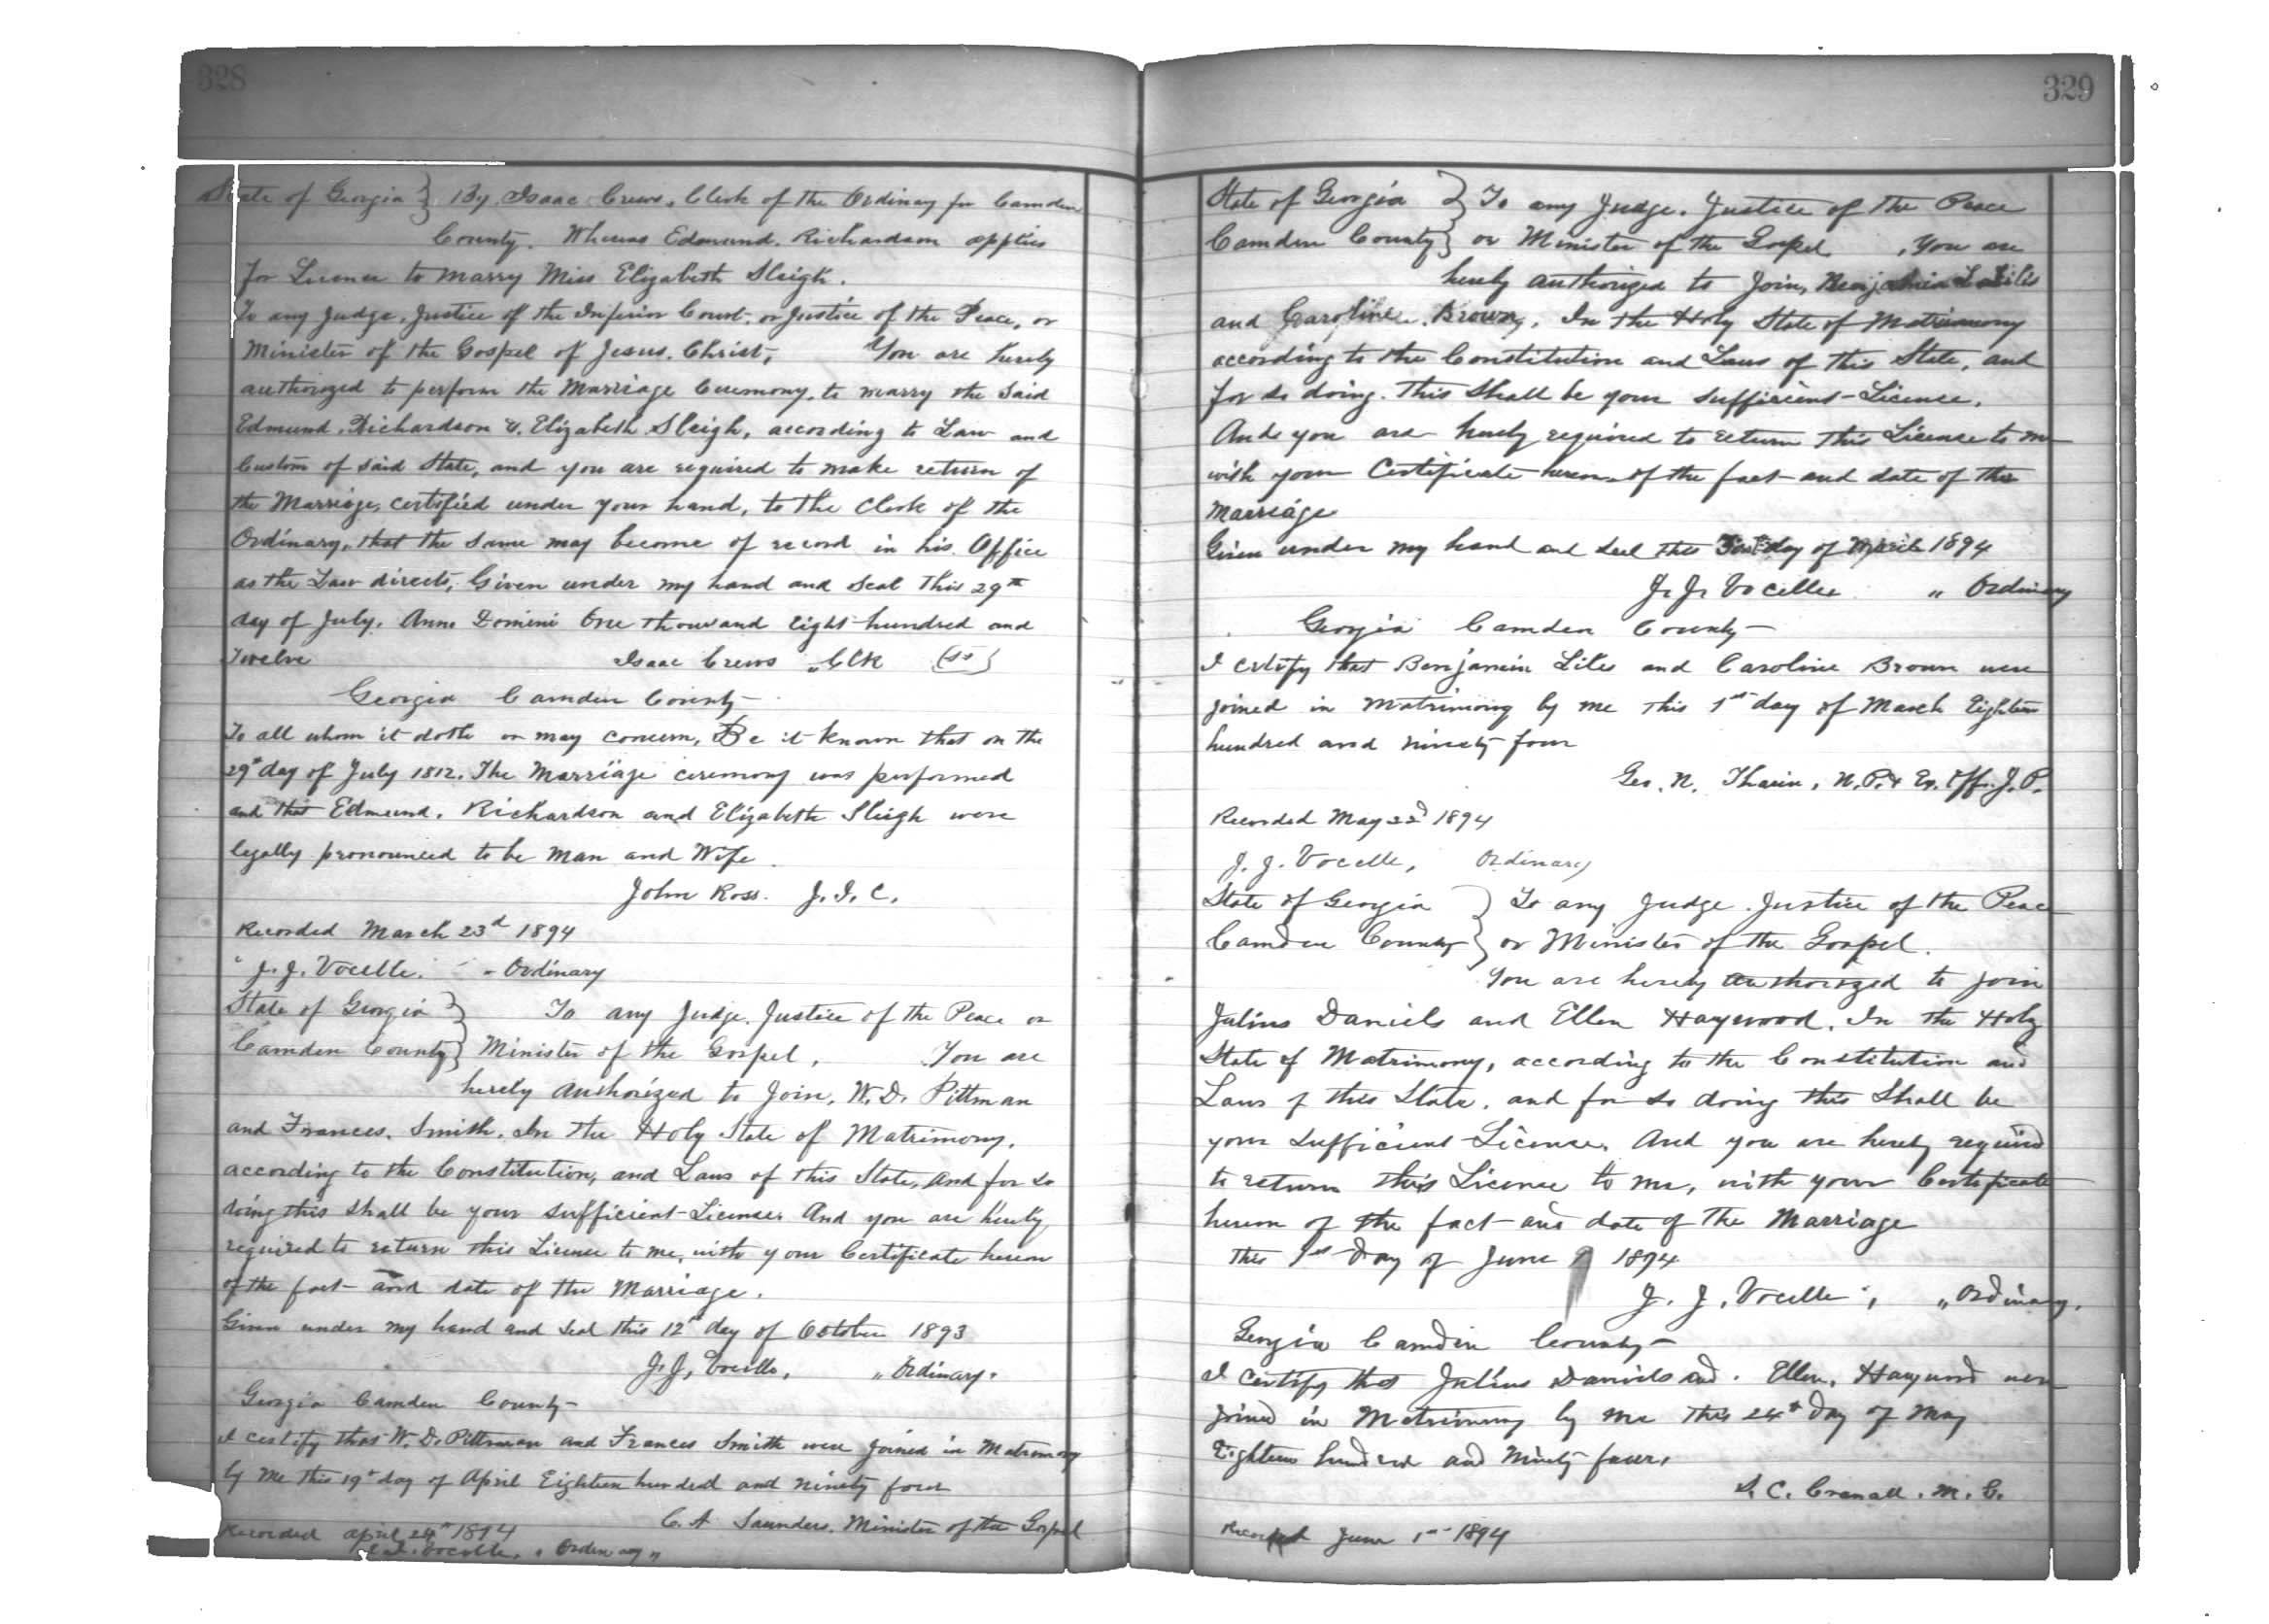 328
State of Georgia } By Isaac Crews, Clerk of the Ordinary for Camden
County. Whereas Edmund. Richardson applies
for License to marry Miss Elizabeth Sleigh.
To any Judge, Justice of the Inferior Court, or Justice of the Peace, or
Minister of the Gospel of Jesus. Christ, You are hereby
authorized to perform the Marriage Ceremony, to marry the said
Edmund, Richardson & Elizabeth Sleigh, according to Law and
Custom of said State, and you are required to make return of
the Marriage, certified under your hand, to the Clerk of the
Ordinary, that the same may become of record in his Office
as the Law directs, Given under my hand and seal this 29th
day of July, Anno Domini One thousand Eight hundred and
Twelve Isaac Crews "Clk
Georgia Camden County
To all whom it doth or may concern, Be it known that on the
29th day of July 1812. The Marriage ceremony was performed
and that Edmund. Richardson and Elizabeth Sleigh were
legally pronounced to be Man and Wife.
John Ross. J. I. C.
Recorded March 23d 1894
" J. J. Vocelle. " Ordinary
State of Georgia } To any Judge, Justice of the Peace or
Camden County } Minister of the Gospel, You are
hereby Authorized to Join, W. D. Pittman
and Frances. Smith. In the Holy State of Matrimony,
according to the Constitution, and Laws of this State, And for so
doing this shall be your sufficient License. And you are hereby
required to return this License to me, with your Certificate hereon
of the fact and date of the Marriage.
Given under my hand and seal this 12th day of October 1893
J. J. Vocelle, " Ordinary.
Georgia Camden County
I certify that W. D. Pittman and Frances Smith were joined in Matrimony
by me this 19th day of April Eighteen hundred and ninety four
C. A Saunders, Minister of the Gospel
Recorded April 24th 1894
J. J. Vocelle, " Ordinary "
329
State of Georgia } To any Judge. Justice of the Peace
Camden County } or Minister of the Gospel, You are
hereby Authorized to Join, Benjamin Liles
and Caroline Brown, In the Holy State of Matrimony
according to the Constitution and Laws of this State, and
for so doing. This shall be your sufficient License.
And you are hereby required to return this License to me
with your Certificate hereon of the fact and date of the
Marriage
Given under my hand and seal this day of 1894
J. J. Vocelle " Ordinary
Georgia Camden County
I certify that Benjamin Liles and Caroline Brown were
joined in Matrimony by me this 1st day of March Eighteen
hundred and ninety four
Geo. N. Tharin, N. P. & Ex. Off. J. P.
Recorded May 22d 1894
J. J. Vocelle, Ordinary
State of Georgia } To any Judge. Justice of the Peace
Camden County } or Minister of the Gospel.
You are hereby Authorized to join
Julius Daniels and Ellen Haywood. In the Holy
State of Matrimony, according to the Constitution and
Laws of this State, and for so doing this Shall be
your sufficient License. And you are hereby required
to return this License to me, with your Certificate
hereon of the fact and date of the Marriage
This 1st Day of June 1894
J. J. Vocelle, " Ordinary.
Georgia Camden County
I certify that Julius Daniels and. Ellen, Haywood were
Joined in Matrimony by me this 24th day of May
Eighteen hundred and Ninety four,
Recorded June 1st 1894